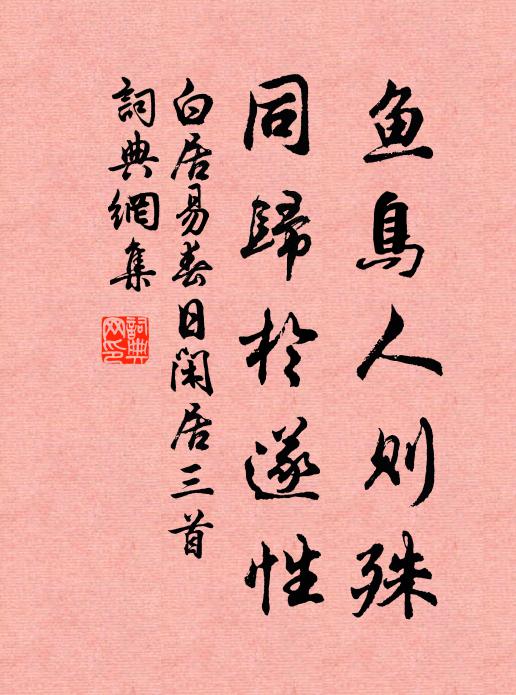 鱼鳥人则殊
同歸於遂性
白居易春日閑居三首
詞典網集
詞典网印